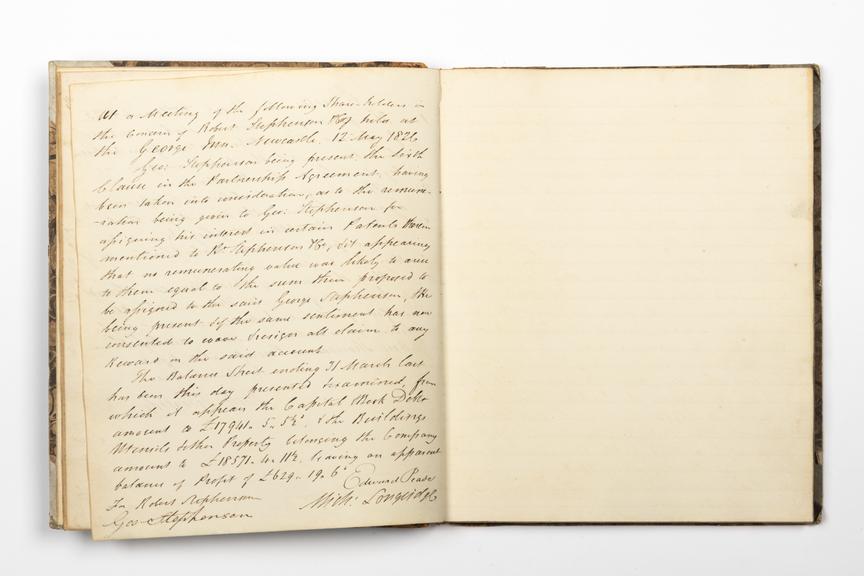 At a Meeting of the following Share-holders in
the Concern of Robert Stephenson & Co held at
the George Inn. Newcastle. 12 May 1826
Geo: Stephenson being present, the sixth
Clause in the Partnership Agreement, having
been taken into consideration, as to the remune-
-ration being given to Geo: Stephenson for
assigning his interest in certain Patents therein
mentioned to Rt Stephenson & Co, & it appearing
that no remunerating value was likely to arise
to them equal to the sum then proposed to
be assigned to the said George Stephenson, He
being present & of the same sentiment has now
consented to wave & resign all claim to any
Reward on the said account
The Balance Sheet ending 31 March last
has been this day presented & examined, from
which it appears the Capital Book Debts
amount to £17941. 5. 5½, & the Buildings
Utensils & other Property belonging the Company
amount to £18571. 4. 11½. leaving an apparent
balance of Profit of £629. 19. 6
Edward Pease
For Robert Stephenson
Mich: Longridge
Geo: Stephenson